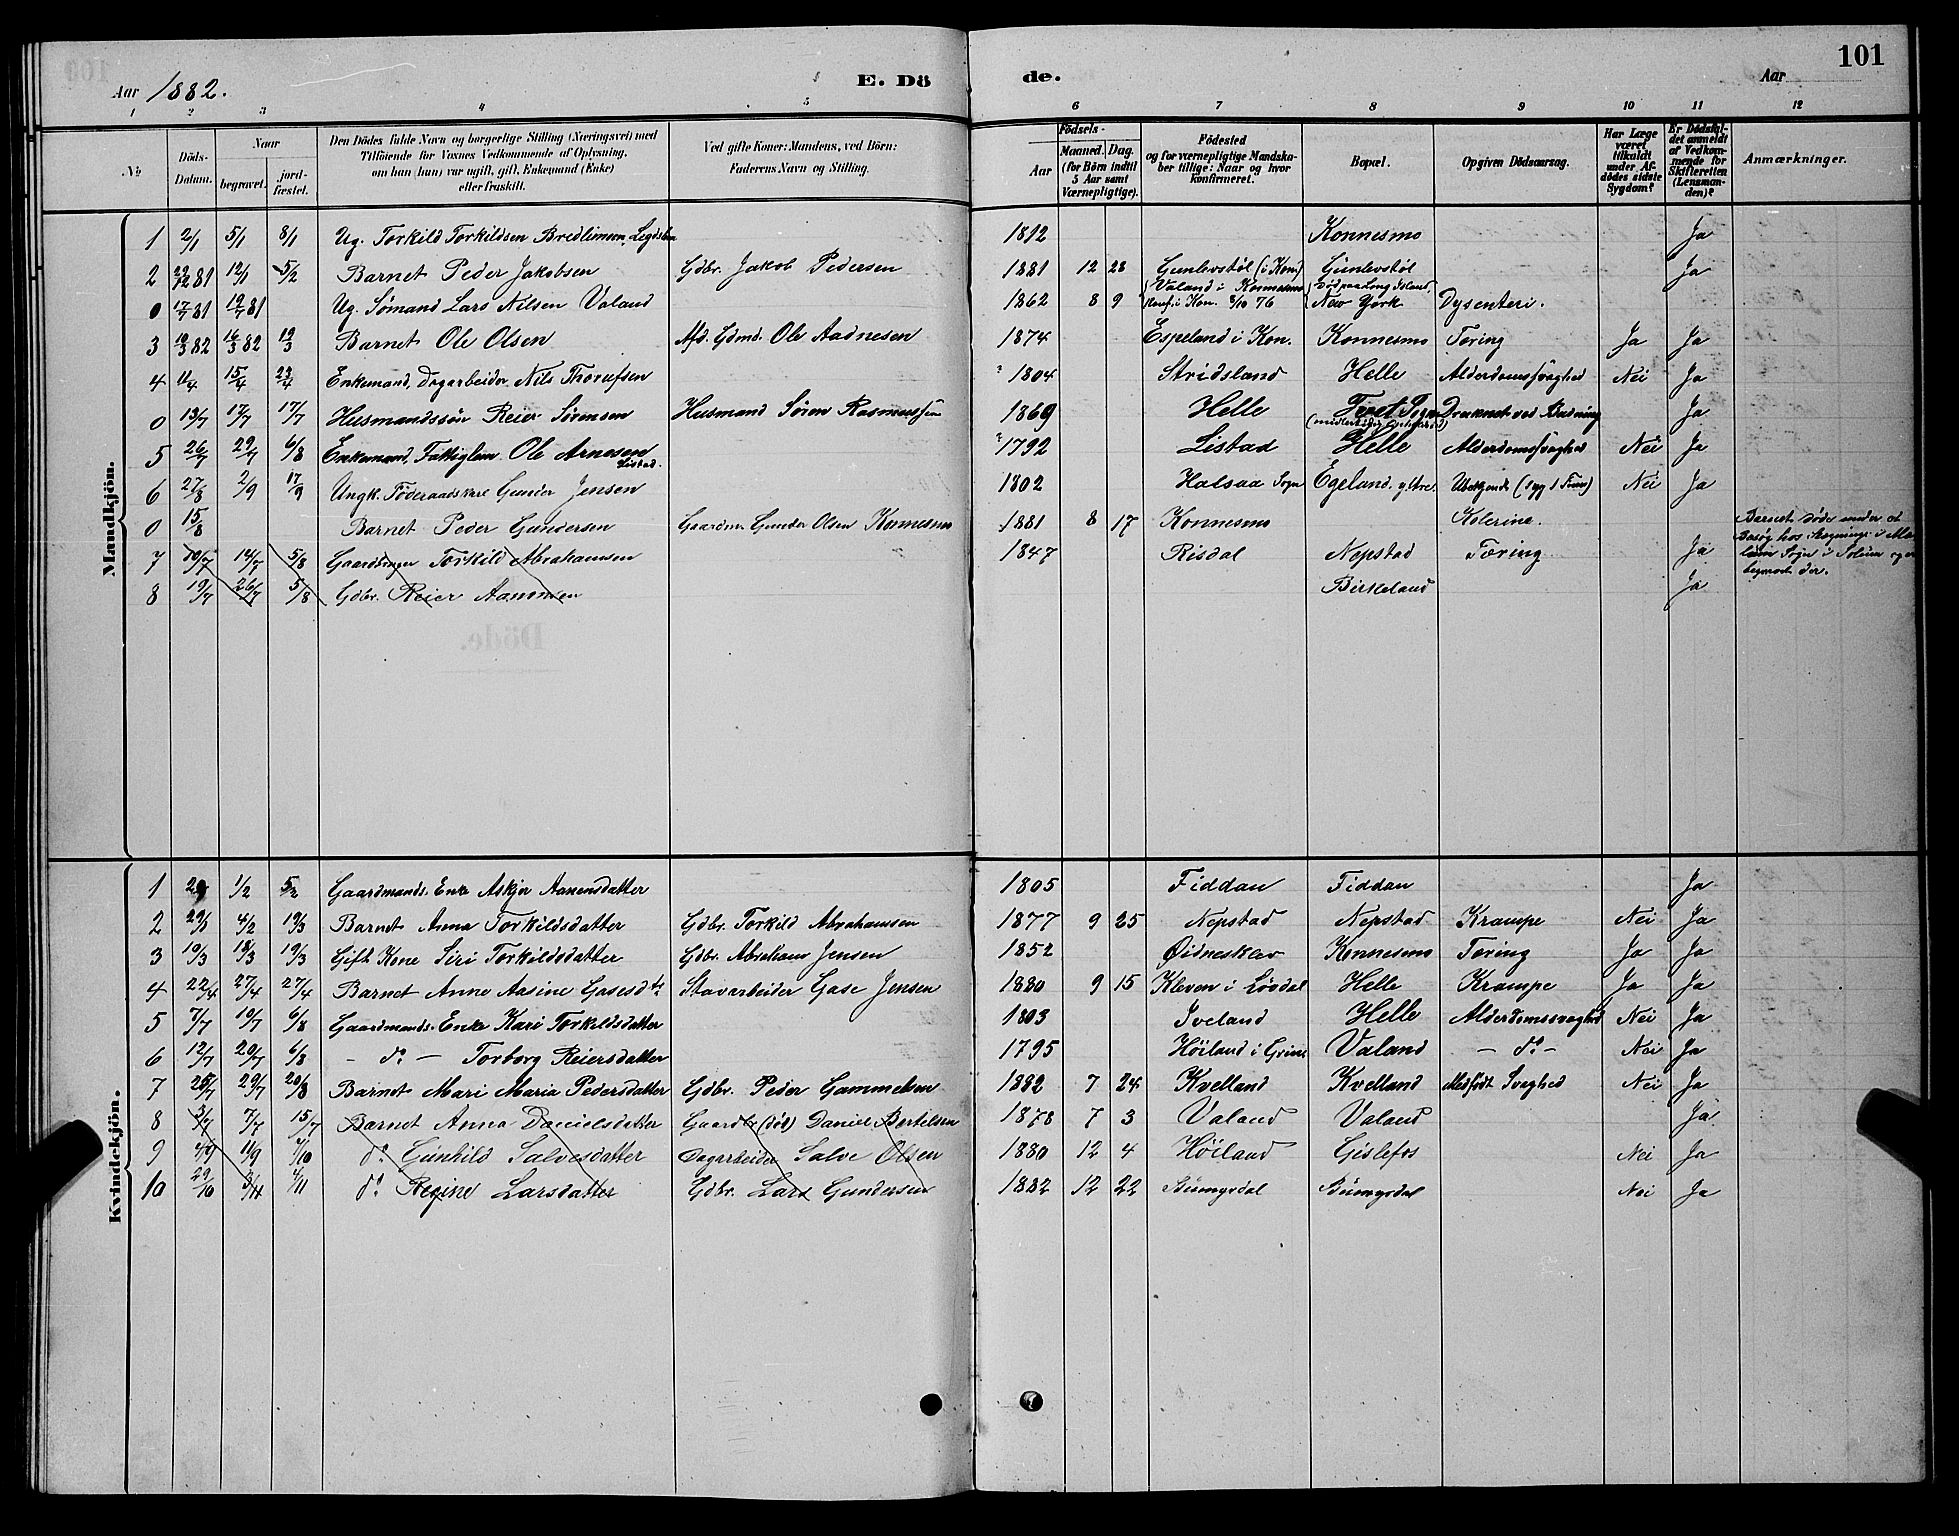 101
Aar 1882.
E. Dö de.
Aar
1 2 3 4 5 6 7 8 9 10 11 12
No
Döds-Datum.
Naar
begravet.
jord-fæstet.
Den Dödes fulde Navn og borgerlige Stilling (Næringsvei) med
Tilföiende for Voxnes Vedkommende af Oplysning,
om han (hun) var ugift, gift, Enkemand (Enke)
eller fraskilt.
Ved gifte Koner: Mandens, ved Börn:
Faderens Navn og Stilling.
Födsels-
Aar
Maaned. Dag.
(for Börn indtil
5 Aar samt
Værnepligtige).
Födested
og for værnepligtige Mandska-
ber tillige: Naar og hvor
konfirmeret.
Bopæl.
Opgiven Dödsaarsag.
Har Læge
været
tilkaldt
under Af-
dödes sidste
Sygdom?
Er Dödsfal-
det anmeldt
af Vedkom-
mende for
Skifteretten
(Lensman-
den)?
Anmærkninger.
Mandkjön.
1 2/1 5/1 8/1 Ug. Torkild Torkildsen 1812 Konnesmo Ja
2 29/12 81 12/1 5/2 Barnet Peder Jakobsen Gdbr. Jakob Pedersen 1881 12 28 Gunlevstøl (i Kon) Gunlevstøl Ja
0 17/7 81 19/7 81 Ug. Sømand Lars Nilsen Valand 1862 8 9 Valand i Konnesmo Konf. i Kon. 8/10 76 Død paa Long Island, New York Dysenteri.
3 10/3 82 16/3 82 19/3 Barnet Ole Olsen Afd. Gdmd. Ole Aadnesen 1874 Espeland i Kon. Konnesmo Tæring Ja Ja
4 11/4 15/4 23/4 Enkemand, Dagarbeider Nils 1804 Stridsland Helle Alderdomssvaghed Nei Ja
0 13/7 17/7 17/7 Husmandssön Reier Sörensen Husmand Sören Rasmussen 1869 Helle Druknet ved Badning Ja
5 26/7 29/7 6/8 Enkemand, Fattiglem Ole Arnesen Listad. 1792 Listad Helle Alderdomssvaghed Nei Ja
6 27/8 2/9 17/9 Ungk. Föderaadskarl Gunder Jensen 1802 Halsaa Sogn Egeland, ytre. Nei Ja
0 15/8 Barnet Peder Gundersen Gaardm. Gunder Olsen Konnesmo 1881 8 17 Konnesmo Kolerine. Barnet døde under et
Besøg hos i
Sogn i og er
begravet der.
7 10/7 14/7 5/8 Gaardbruger Torkild Abrahamsen 1847 Risdal Nepstad Tæring Ja
8 19/7 26/7 5/8 Gdbr. Reier Aanensen Birkeland Ja
Kvindekjön.
1 1/2 5/2 Gaardmands Enke Askjer Aanensdatter 1805 Fiddan Fiddan Ja
2 29/1 4/2 19/3 Barnet Anna Torkildsdatter Gdbr. Torkild Abrahamsen 1877 9 25 Nepstad Nepstad Krampe Nei Ja
3 10/3 18/3 19/3 Gift Kone Siri Torkildsdatter Gdbr. Abraham Jensen 1852 Øidneskav Konnesmo Tæring Ja Ja
4 22/4 27/4 27/4 Barnet Anne Aasine Gasesdtr Stavarbeider Gase Jensen 1880 9 15 Kleven i Løvdal Helle Krampe Ja Ja
5 7/7 10/7 6/8 Gaardmands Enke Kari Torkildsdatter 1803 Iveland Helle Alderdomssvaghed Nei Ja
6 12/7 20/7 6/8 – do – Torborg Reiersdatter 1795 Höiland i Valand – do – Nei Ja
7 25/7 29/7 20/8 Barnet Mari Maria Pedersdatter Gdbr. Peder Gammelsen 1882 7 24 Kvelland Kvelland Medfødt Svaghed Nei Ja
8 3/7 7/7 15/7 Barnet Anna Danielsdatter Gaardbr (död) Daniel Bertelsen 1878 7 3 Valand Valand Ja
9 4/9 11/9 1/10 do Gunhild Salvesdatter Dagarbeider Salve Olsen 1880 12 4 Höiland Gislefos Nei Ja
10 29/10 3/11 4/11 do Regine Larsdatter Gdbr. Lars Gundersen 1882 12 22 Nei Ja